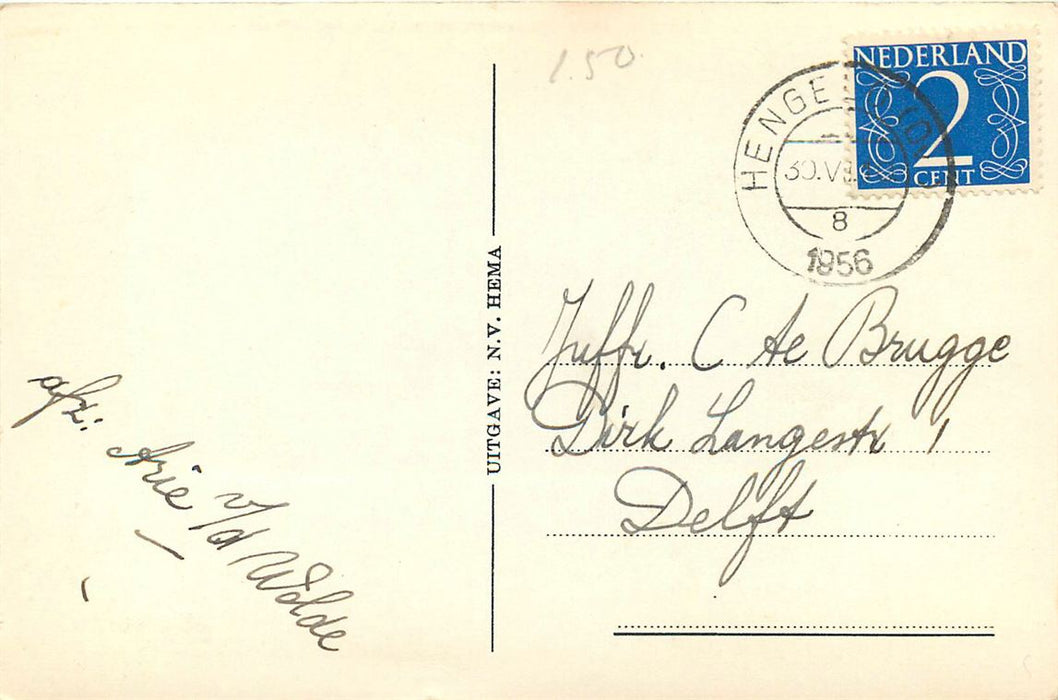 1.50
NEDERLAND
2
CENT
HENGELO (O)
8
1956
UITGAVE: N.V. HEMA
Juffr. C te Brugge
Dirk Langestr 1
Delft
afz: Arie v/d Welde